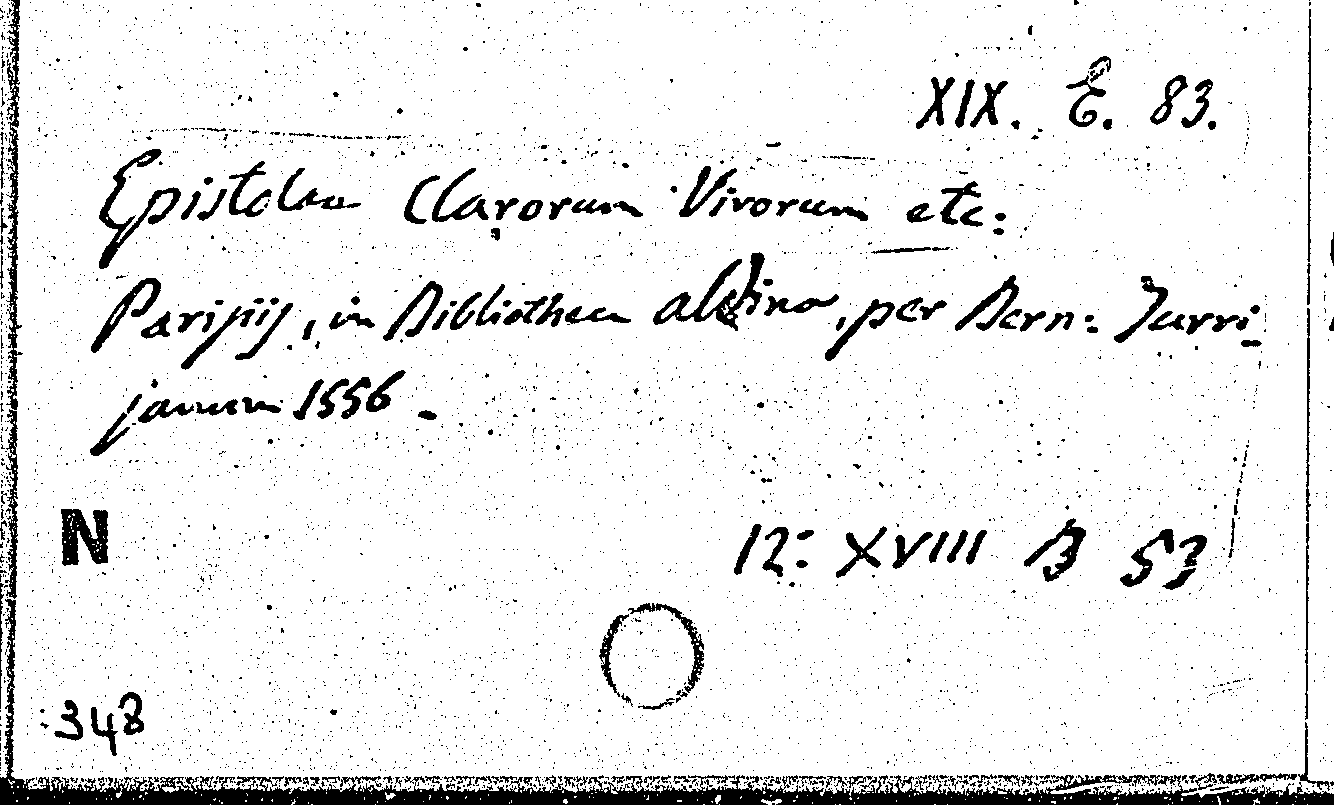 XIX. E. 83.
Epistolae Clarorum Virorum etc:
Parisiis, in Bibliotheca aldina, per Bern: Turri
janum 1556.
N
12: XVIII B 53
348